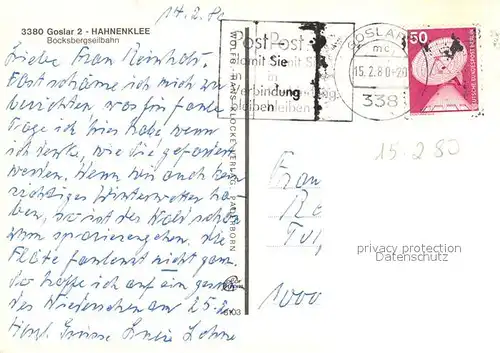 14.2.80
3380 Goslar 2 - HAHNENKLEE
Bocksbergseilbahn
Liebe Frau Reinholz.
Fast schäme ich mich zu
berichten was für faule
Tage ich hier habe wenn
ich denke, wie Sie gefordert
werden. Wenn wir auch kein
richtiges Winterwetter haben
so ist der Wald schön
zum spazierengehen. Die
Flöte faulenzt nicht ganz.
So hoffe ich auf ein gesundes
Wiedersehen am 25.2.
Herzl. Grüsse
WOLFG. HANS KLOCKE VERLAG PADERBORN
6103
PostPost
damit Sie
in
Verbindung
bleiben
GOSLAR
mc
15.2.80
338
50
DEUTSCHE BUNDESPOST BERLIN
15.2.80
Frau
1000
privacy protection
Datenschutz